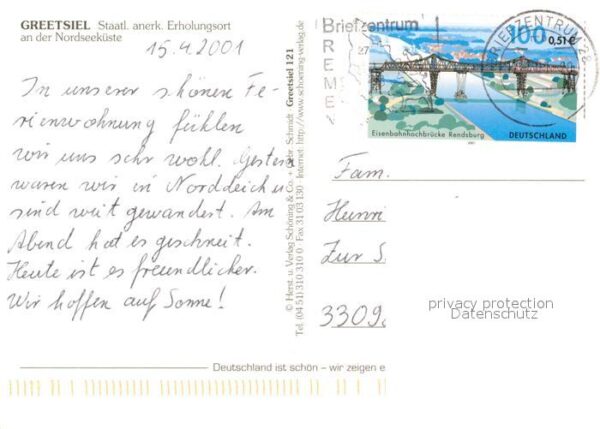 GREETSIEL Staatl. anerk. Erholungsort
an der Nordseeküste
15.4.2001
In unserer schönen Fe-
rienwohnung fühlen
wir uns sehr wohl. Gestern
waren wir in Norddeich u.
sind weit gewandert. Am
Abend hat es geschneit.
Heute ist es freundlicher.
Wir hoffen auf Sonne!
© Herst. u. Verlag Schöning & Co. + Gebr. Schmidt Greetsiel 121
Tel. (04 51) 310 310 0 · Fax 31 03 130 · Internet: http://www.schoening-verlag.de
Briefzentrum
BREMEN
BRIEFZENTRUM 28
100
0,51 €
Eisenbahnhochbrücke Rendsburg
DEUTSCHLAND
Fam.
Heinri
Zur S
3309
privacy protection
Datenschutz
Deutschland ist schön – wir zeigen e